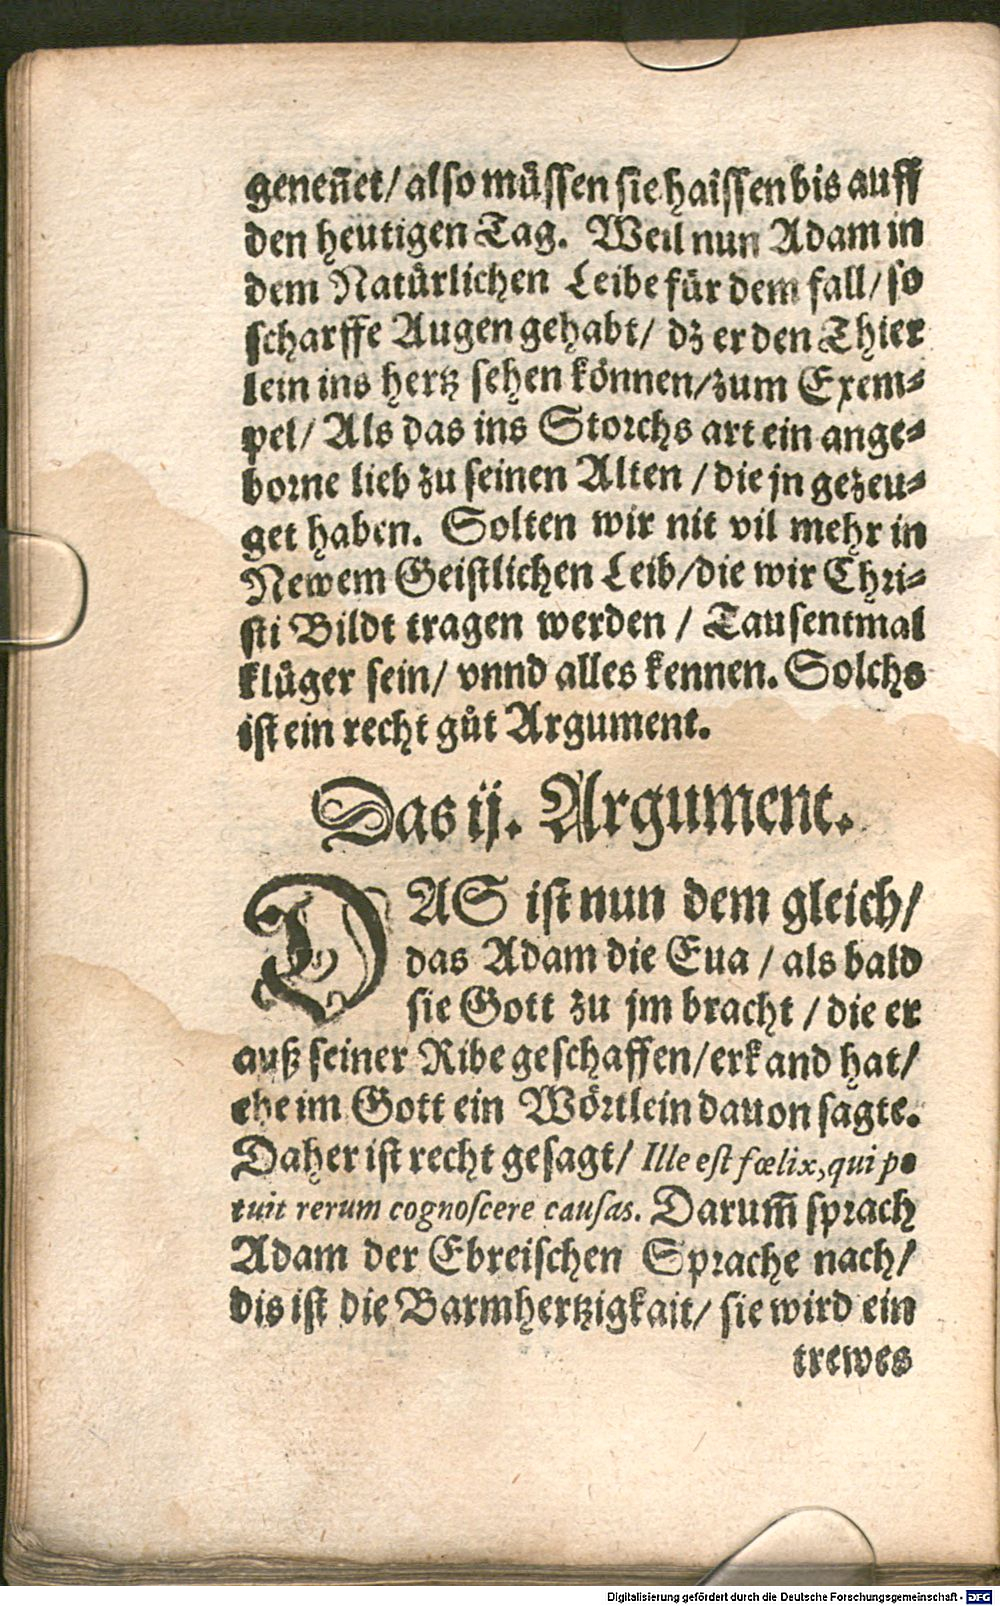 geneñet/ also müssen sie haissen bis auff
den heütigen Tag. Weil nun Adam in
dem Natürlichen Leibe für dem fall/ so
scharffe Augen gehabt/ dz er den Thier
lein ins hertz sehen können/zum Exem⸗
pel/ Als das ins Storchs art ein ange⸗
borne lieb zu seinen Alten / die jn gezeu⸗
get haben. Solten wir nit vil mehr in
Newem Geistlichen Leib/die wir Chri⸗
sti Bildt tragen werden / Tausentmal
klüger sein/ vnnd alles kennen. Solchs
ist ein recht gůt Argument.
Das ij. Argument.
DAS ist nun dem gleich/
das Adam die Eua / als bald
sie Gott zu jm bracht / die er
auß seiner Ribe geschaffen/erkand hat/
ehe im Gott ein Wörtlein dauon sagte.
Daher ist recht gesagt/ Ille est fœlix, qui po
tuit rerum cognoscere causas. Darum̃ sprach
Adam der Ebreischen Sprache nach/
dis ist die Barmhertzigkait/ sie wird ein
trewes
Digitalisierung gefördert durch die Deutsche Forschungsgemeinschaft - DFG